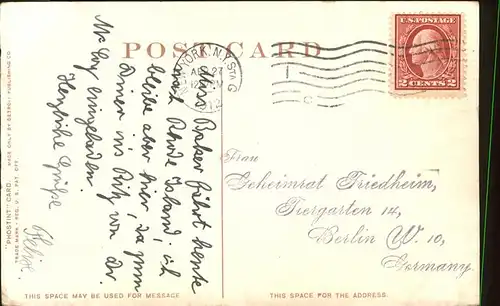 POST CARD
NEW YORK, N.Y. STA G
AUG 27
12
U.S. POSTAGE
2 CENTS 2
Miss Baker fährt heute
nach Rhode Island, ich
bleibe aber hier, da zum
Diner ins Ritz von Dr.
Mc Coy eingeladen.
Herzliche Grüße
Felix.
Frau
Geheimrat Friedheim,
Tiergarten 14,
Berlin W. 10,
Germany.
"PHOSTINT" CARD. MADE ONLY BY DETROIT PUBLISHING CO.
TRADE MARK - REG. U. S. PAT. OFF.
THIS SPACE MAY BE USED FOR MESSAGE
THIS SPACE FOR THE ADDRESS.